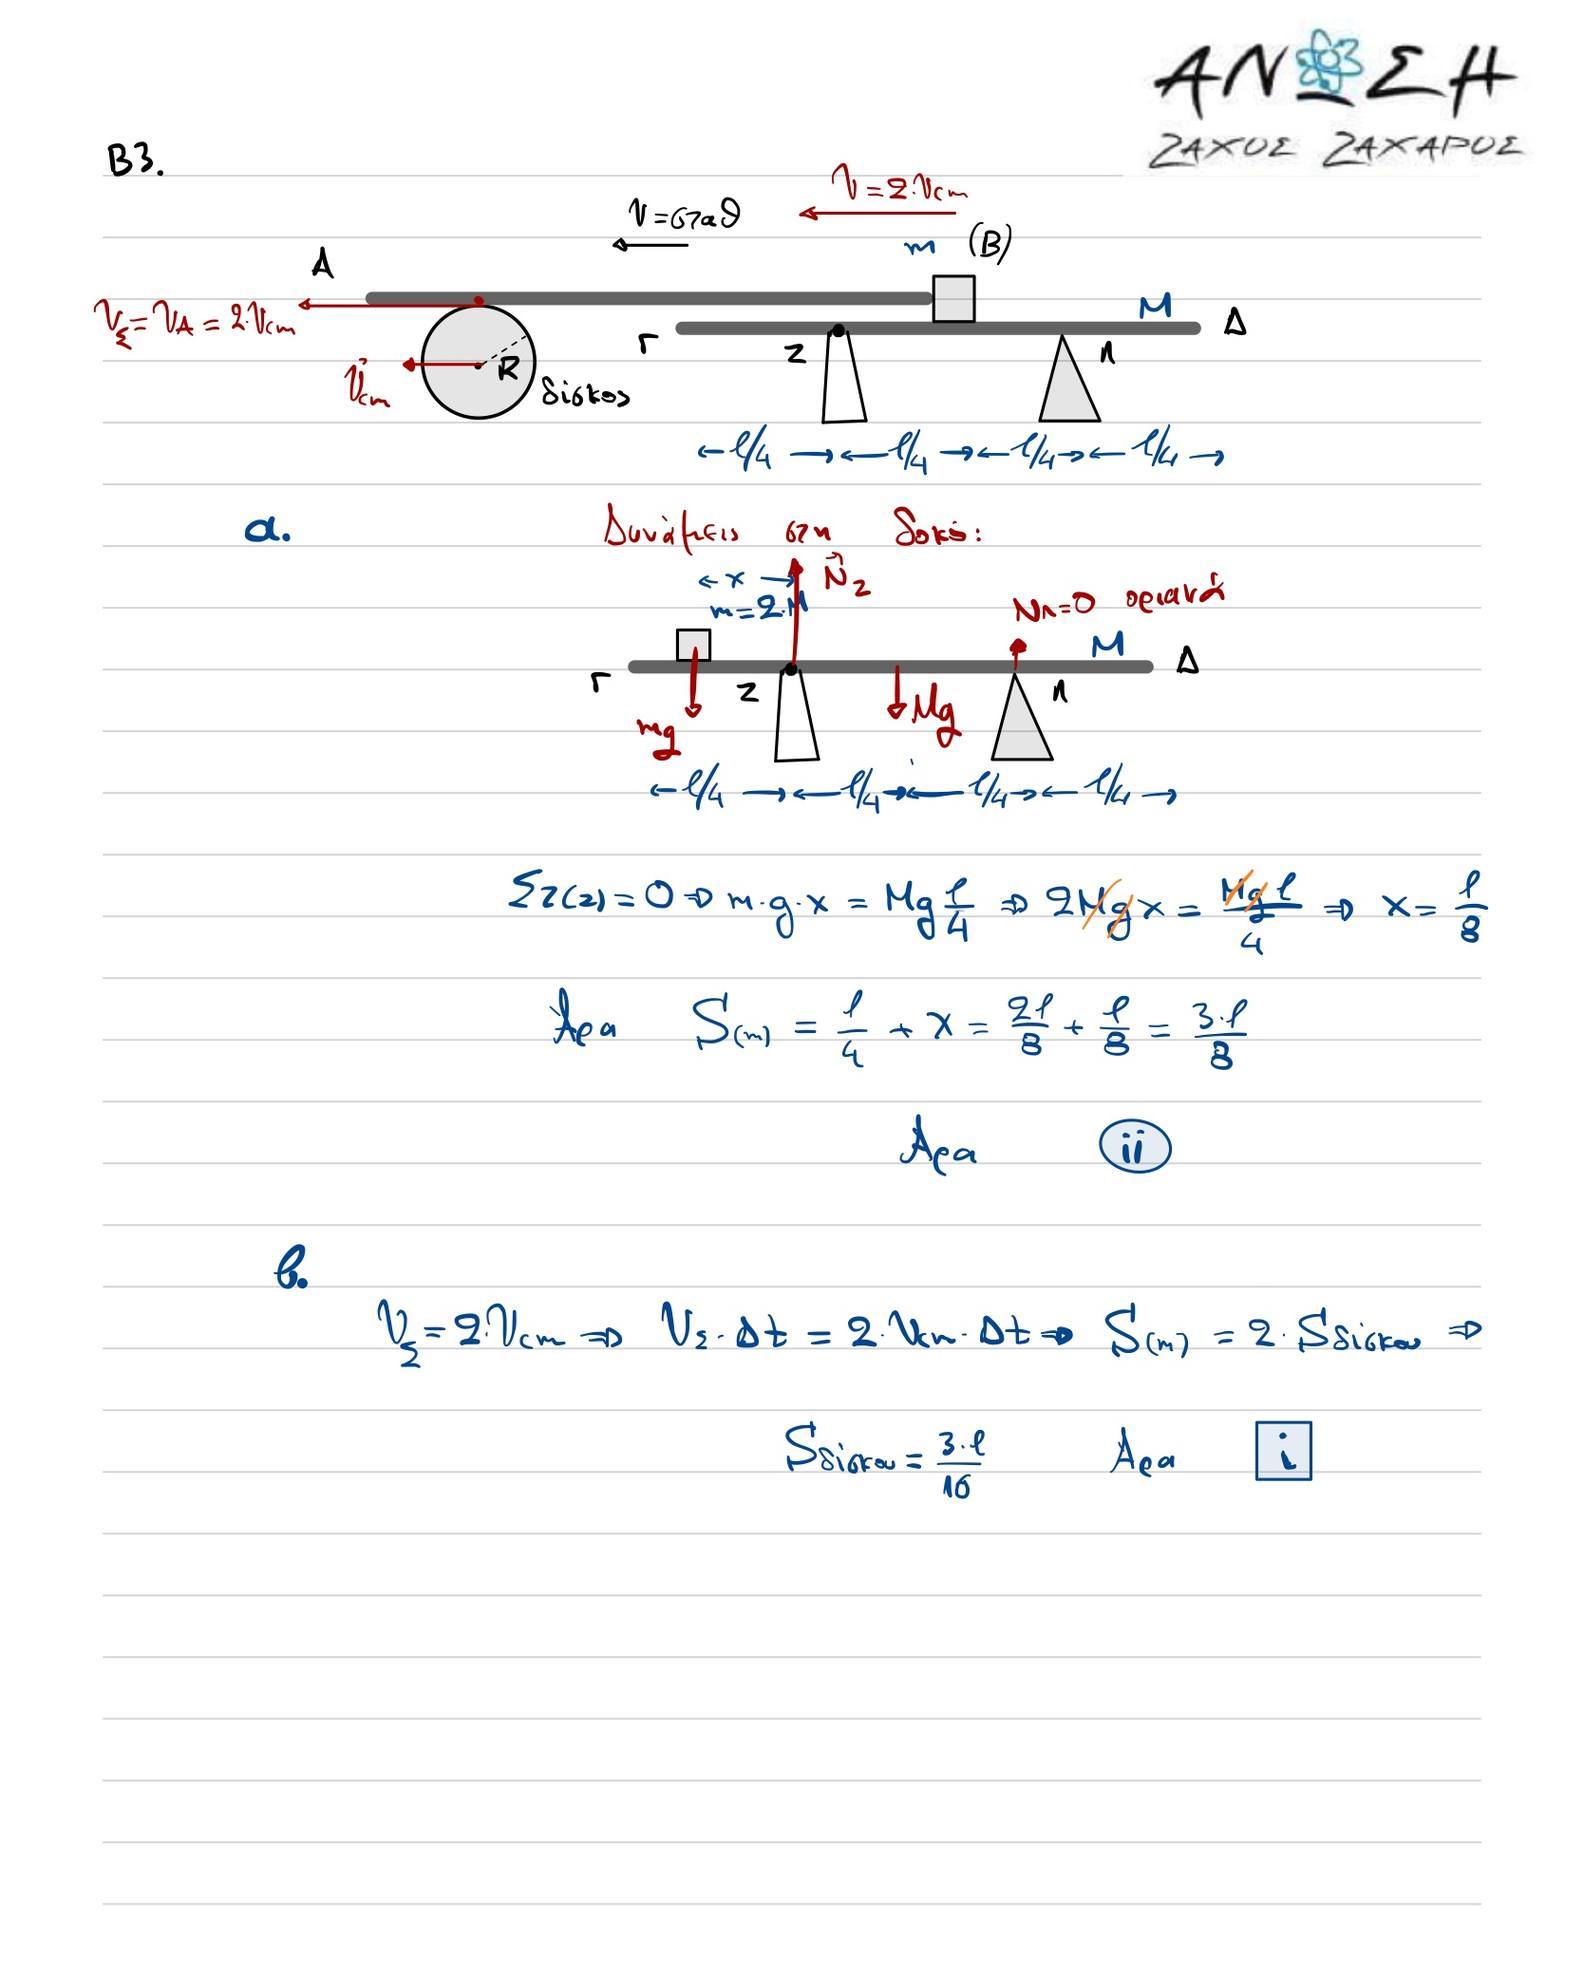 ΑΝΩΣΗ
ΖΑΧΟΣ ΖΑΧΑΡΟΣ
B3.
V=σταθ
V=2·Vcm
A
m (B)
M
VΣ=VA=2·Vcm
Γ
Δ
Z
Λ
Vcm
R
δίσκος
←l/4→←l/4→←l/4→←l/4→
a.
Δυνάμεις στη δοκό:
←x→
N⃗Z
m=2·M
NΛ=0 οριακά
M
Γ
Z
Λ
Δ
mg
Mg
←l/4→←l/4→←l/4→←l/4→
Στ(Z)=0 ⇒ m·g·x = Mg l/4 ⇒ 2Mgx = Mgl/4 ⇒ x = l/8
Άρα S(m) = l/4 + x = 2l/8 + l/8 = 3·l/8
Άρα ii
b.
VΣ=2·Vcm ⇒ VΣ·Δt = 2·Vcm·Δt ⇒ S(m) = 2·Sδίσκου ⇒
Sδίσκου = 3·l/16 Άρα i